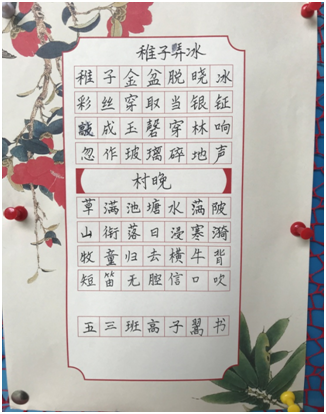 稚子弄冰
稚子金盆脱晓冰
彩丝穿取当银钲
敲成玉磬穿林响
忽作玻璃碎地声
村晚
草满池塘水满陂
山衔落日浸寒漪
牧童归去横牛背
短笛无腔信口吹
五三班高子翯书